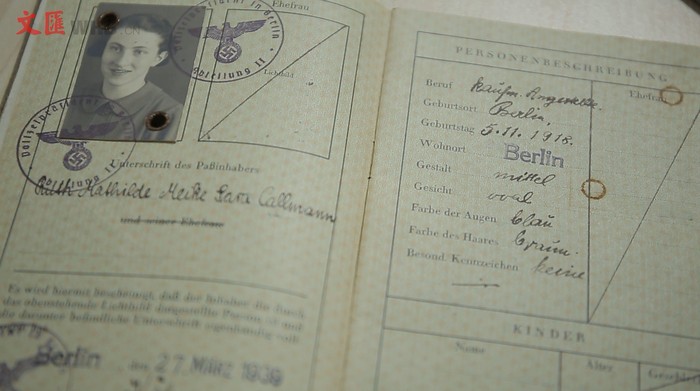 文匯 WHB.CN
Ehefrau
Polizeipräsident in Berlin
Abteilung II
Lichtbild
Abteilung II
Unterschrift des Paßinhabers
Ruth Mathilde Meike Sara Callmann
und seiner Ehefrau
Es wird hiermit bescheinigt, daß der Inhaber die durch
das obenstehende Lichtbild dargestellte Person ist und
die darunter befindliche Unterschrift eigenhändig voll-
Berlin, den 27. März 1939
PERSONENBESCHREIBUNG
Ehefrau
Beruf kaufm. Angestellte.
Geburtsort Berlin,
Geburtstag 5.11.1918.
Wohnort Berlin
Gestalt mittel
Gesicht oval
Farbe der Augen blau
Farbe des Haares braun.
Besond. Kennzeichen keine
KINDER
Name Alter Geschle